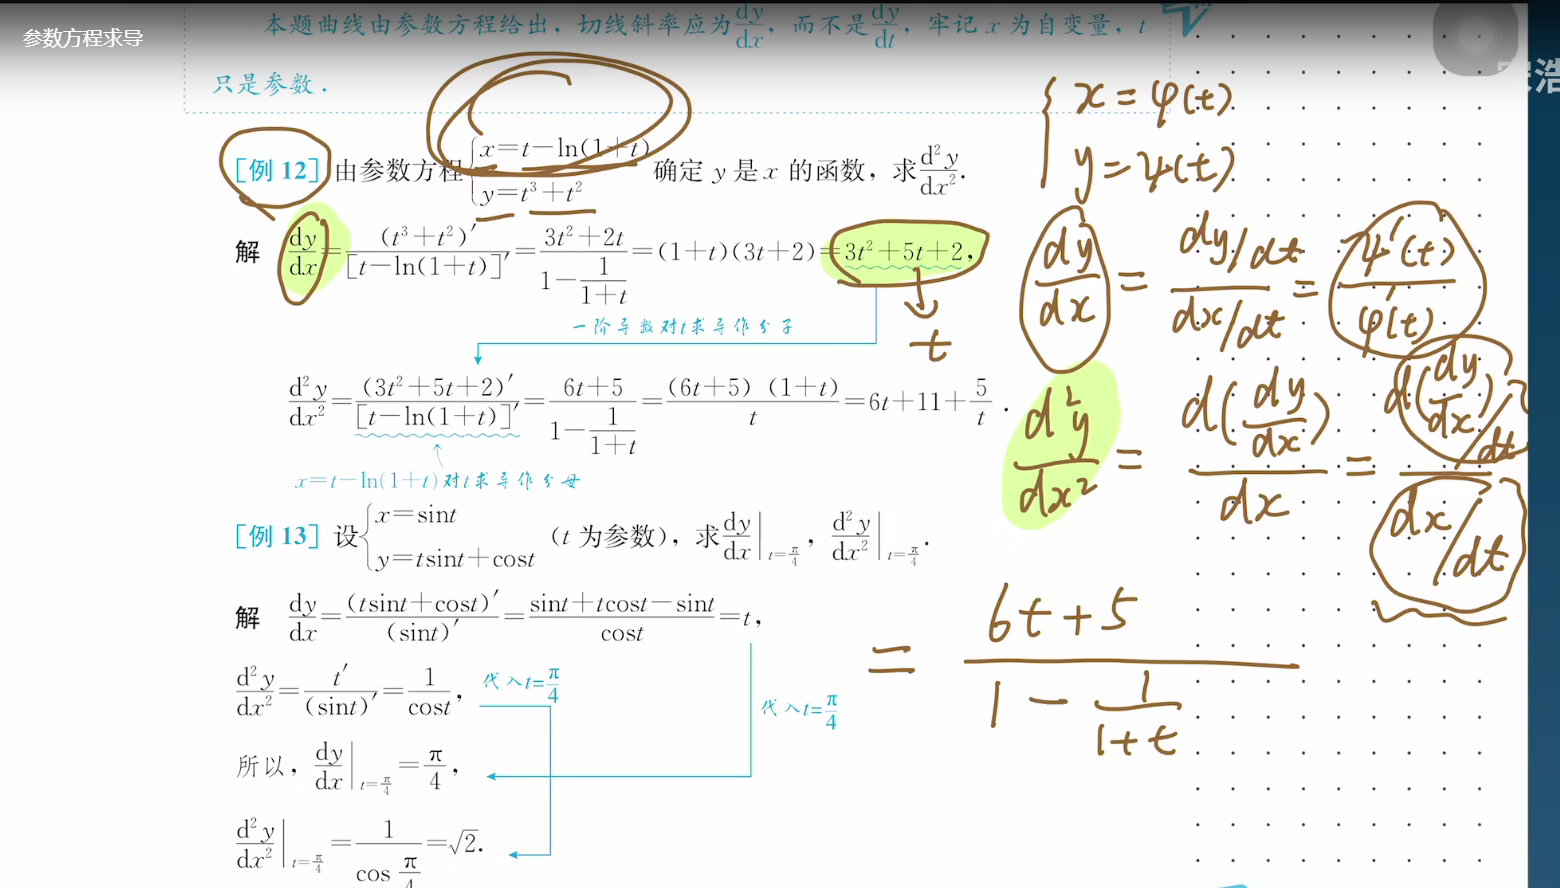 参数方程求导
本题曲线由参数方程给出，切线斜率应为dy/dx，而不是dy/dt，牢记 x 为自变量，t
只是参数．
［例 12］由参数方程{x=t−ln(1+t) y=t³+t² 确定 y 是 x 的函数，求d²y/dx².
解 dy/dx=(t³+t²)′/[t−ln(1+t)]′=(3t²+2t)/(1−1/(1+t))=(1+t)(3t+2)=3t²+5t+2,
一阶导数对t求导作分子
d²y/dx²=(3t²+5t+2)′/[t−ln(1+t)]′=(6t+5)/(1−1/(1+t))=(6t+5)(1+t)/t=6t+11+5/t.
x=t−ln(1+t)对t求导作分母
［例 13］设{x=sint y=tsint+cost （t 为参数），求dy/dx|t=π/4，d²y/dx²|t=π/4.
解 dy/dx=(tsint+cost)′/(sint)′=(sint+tcost−sint)/cost=t,
d²y/dx²=t′/(sint)′=1/cost,
代入t=π/4
代入t=π/4
所以，dy/dx|t=π/4=π/4,
d²y/dx²|t=π/4=1/cos π/4=√2.
{x=φ(t)
y=ψ(t)
dy/dx=(dy/dt)/(dx/dt)=ψ′(t)/φ′(t)
d²y/dx²=d(dy/dx)/dx=(d(dy/dx)/dt)/(dx/dt)
=(6t+5)/(1−1/(1+t))
t